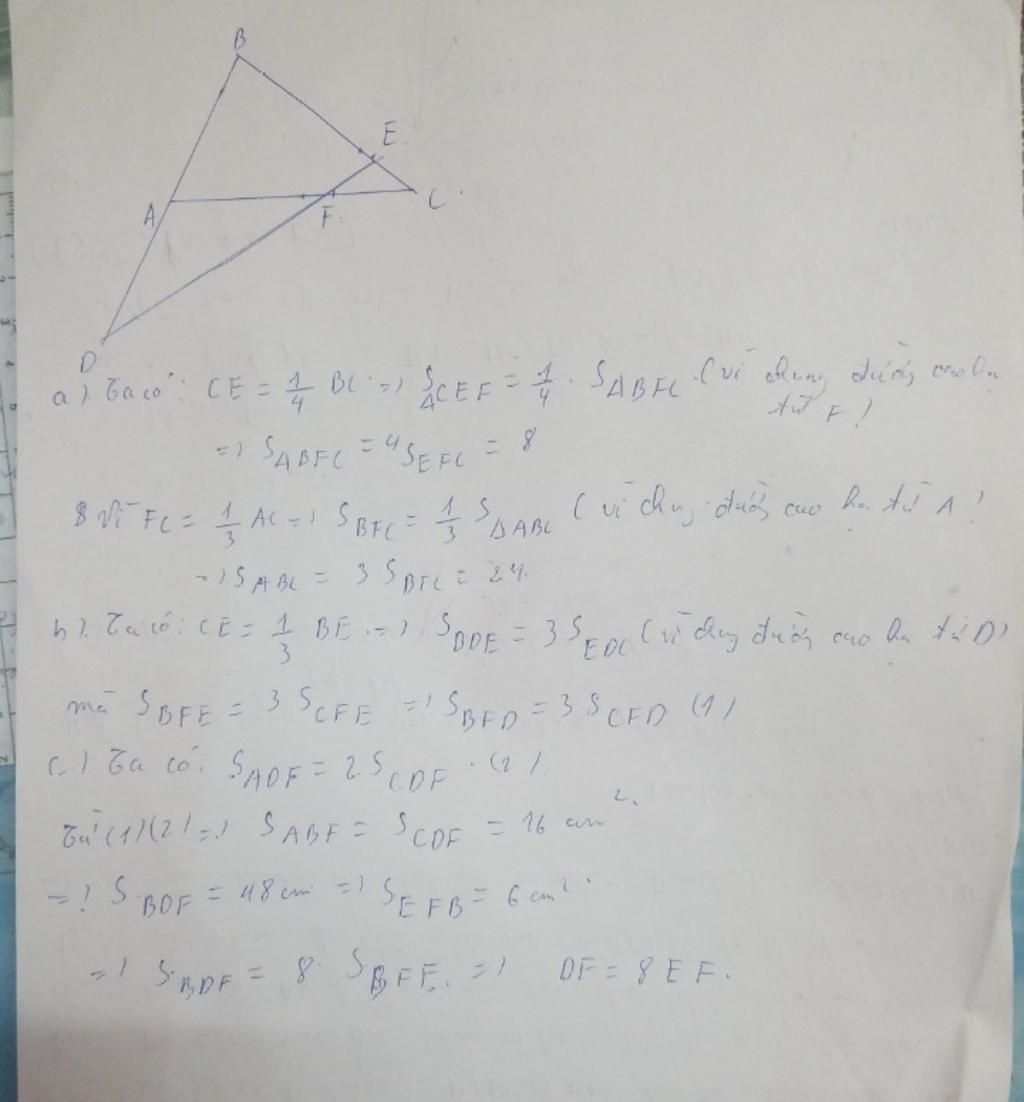 B
E
A
F
C
D
a) Ta có: CE = 1/4 BC => S ΔCEF = 1/4 . S ΔBFC (vì chung đường cao hạ
từ F)
=> S ΔBFC = 4 S EFC = 8
Vì FC = 1/3 AC => S BFC = 1/3 S ΔABC (vì chung đường cao hạ từ A)
=> S ABC = 3 S BFC = 24.
b) Ta có: CE = 1/3 BE => S BDE = 3 S EDC (vì chung đường cao hạ từ D)
mà S BFE = 3 S CFE => S BFD = 3 S CFD (1)
c) Ta có: S ADF = 2 S CDF . (2)
Từ (1) (2) => S ABF = S CDF = 16 cm 2.
=> S BDF = 48 cm => S EFB = 6 cm²
=> S BDF = 8 S BFE. => DF = 8 EF.